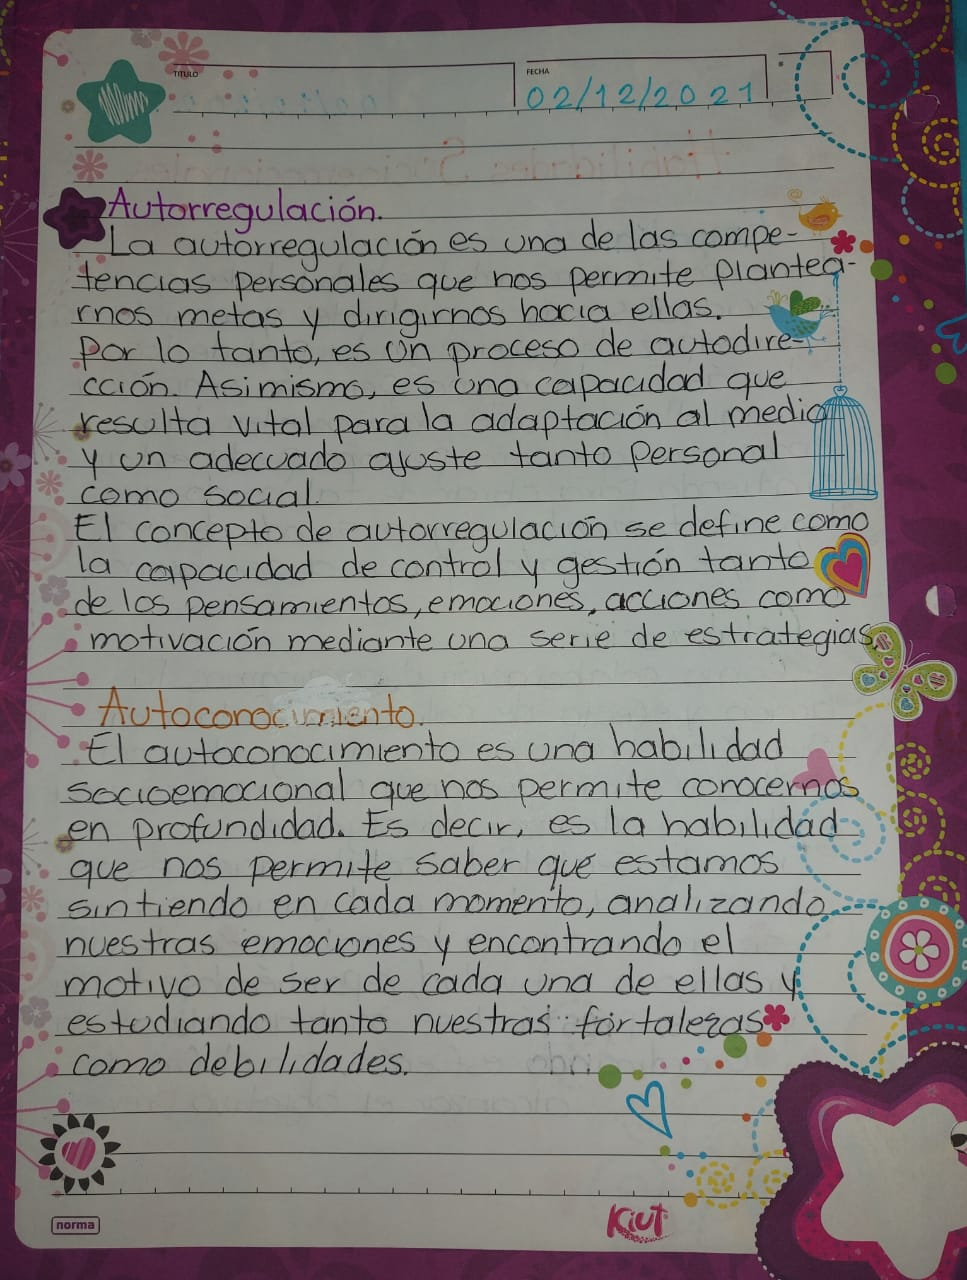 TITULO
FECHA
02/12/2021
Autorregulación.
La autorregulación es una de las compe-
tencias personales que nos permite plantea-
rnos metas y dirigirnos hacia ellas.
Por lo tanto, es un proceso de autodire-
cción. Asimismo, es una capacidad que
resulta vital para la adaptación al medio
y un adecuado ajuste tanto personal
como social.
El concepto de autorregulación se define como
la capacidad de control y gestión tanto
de los pensamientos, emociones, acciones como
motivación mediante una serie de estrategias.
Autoconocimiento.
El autoconocimiento es una habilidad
socioemocional que nos permite conocernos
en profundidad. Es decir, es la habilidad
que nos permite saber que estamos
sintiendo en cada momento, analizando
nuestras emociones y encontrando el
motivo de ser de cada una de ellas y
estudiando tanto nuestras fortalezas
como debilidades.
norma
Kiut